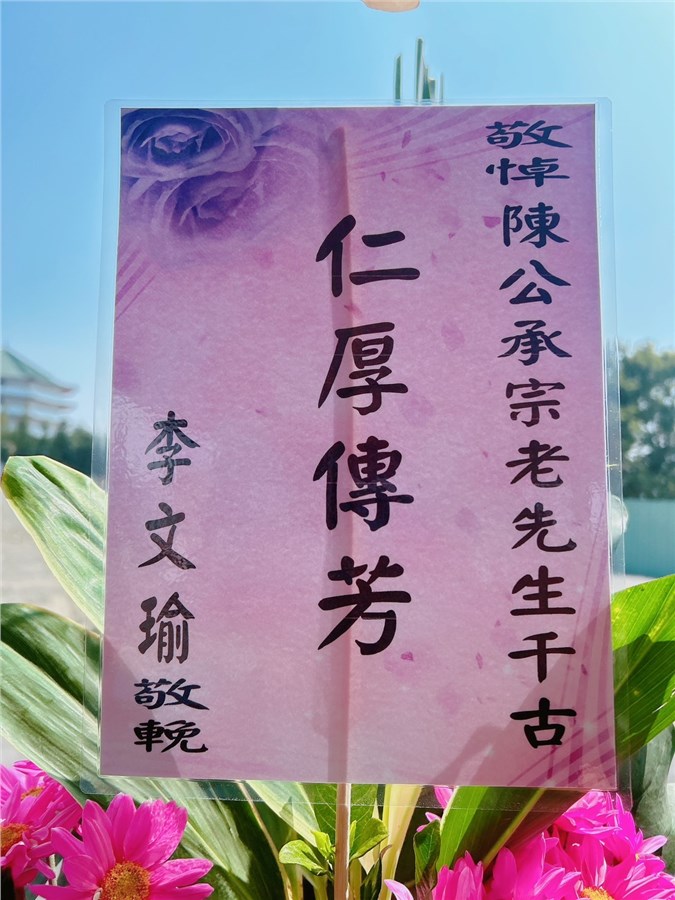 敬悼陳公承宗老先生千古
仁厚傳芳
李文瑜敬輓